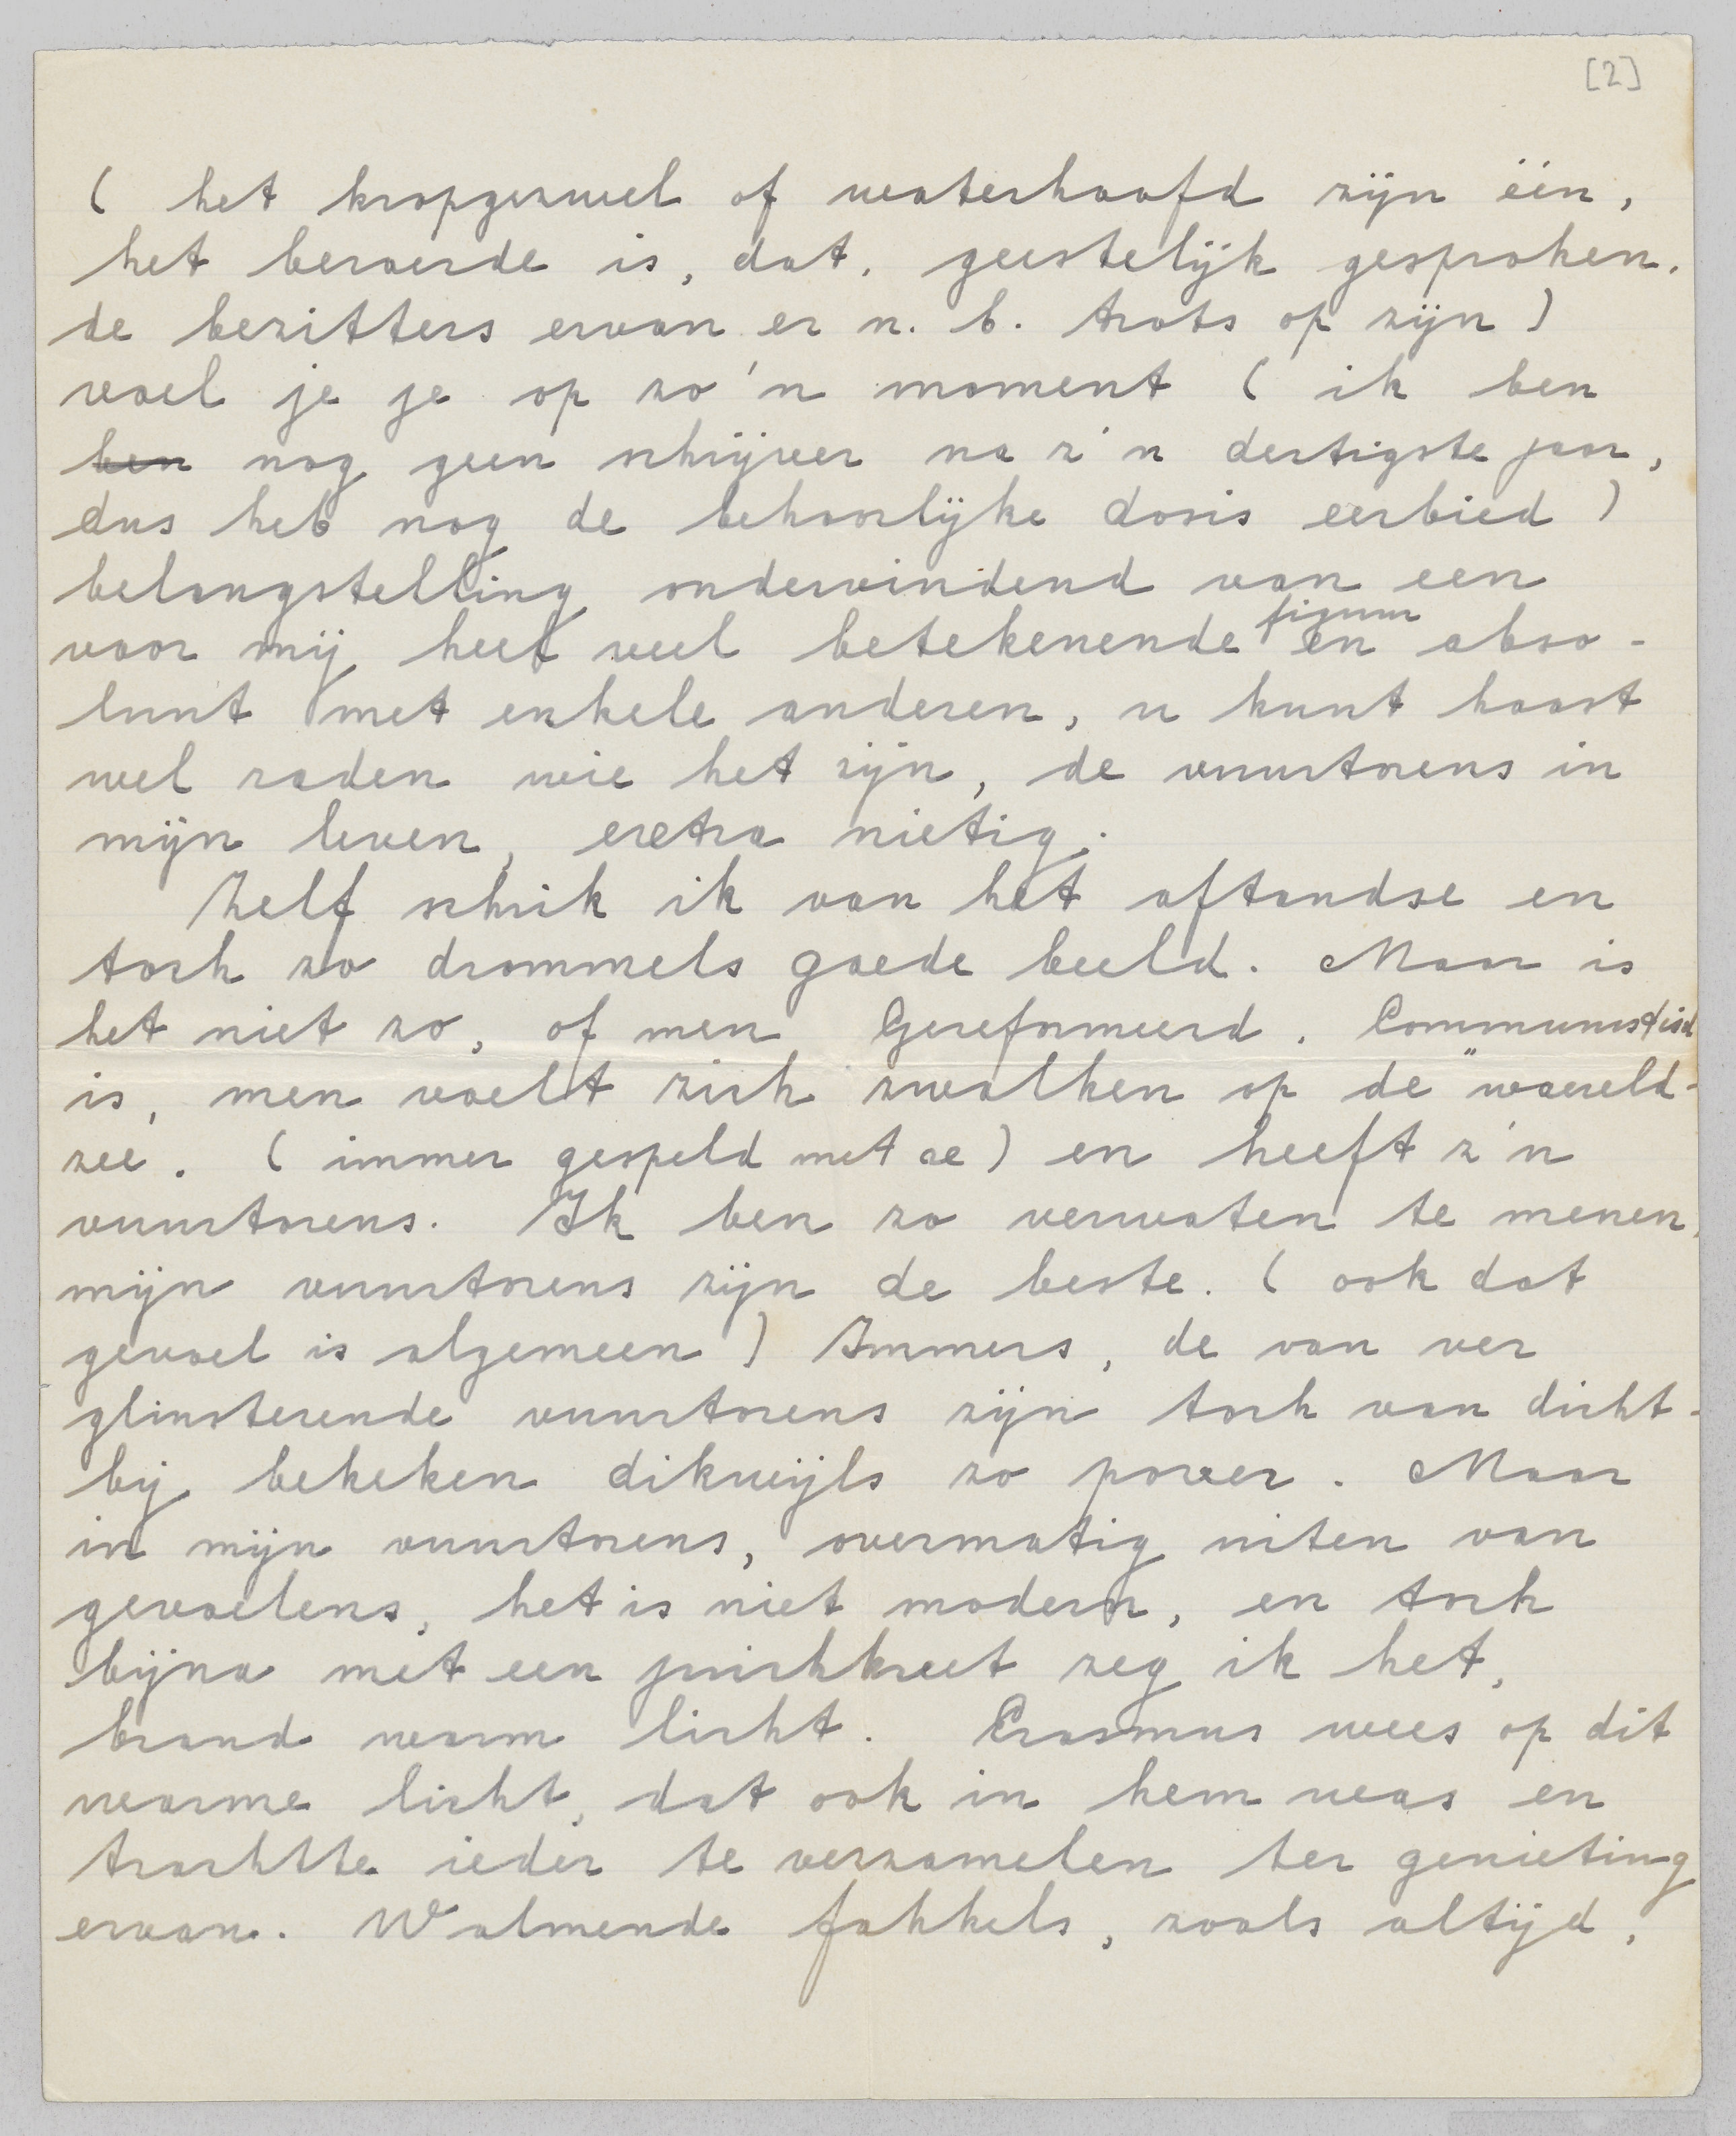 [2]
( het kropgezwel of waterhoofd zijn één,
het beroerde is, dat, geestelijk gesproken,
de bezitters ervan er n. b. trots op zijn )
voel je je op zo'n moment ( ik ben
ben nog geen schrijver na z'n dertigste jaar,
dus heb nog de behoorlijke dosis eerbied )
belangstelling ondervindend van een
voor mij heel veel betekenende figuur en abso-
luut met enkele anderen, u kunt haast
wel raden wie het zijn, de vuurtorens in
mijn leven, extra nietig.
Zelf schrik ik van het aftandse en
toch zo drommels goede beeld. Maar is
het niet zo, of men Gereformeerd, Communistisch
is, men voelt zich zwalken op de "waereld-
zee. ( immer gespeld met ae ) en heeft z'n
vuurtorens. Ik ben zo verwaten te menen,
mijn vuurtorens zijn de beste. ( ook dat
gevoel is algemeen ) Immers, de van ver
glinsterende vuurtorens zijn toch van dicht-
bij bekeken dikwijls zo pover. Maar
in mijn vuurtorens, overmatig uiten van
gevoelens, het is niet modern, en toch
bijna met een juichkreet zeg ik het,
brand warm licht. Erasmus wees op dit
warme licht, dat ook in hem was en
trachtte ieder te verzamelen ter genieting
ervan. Walmende fakkels, zoals altijd,